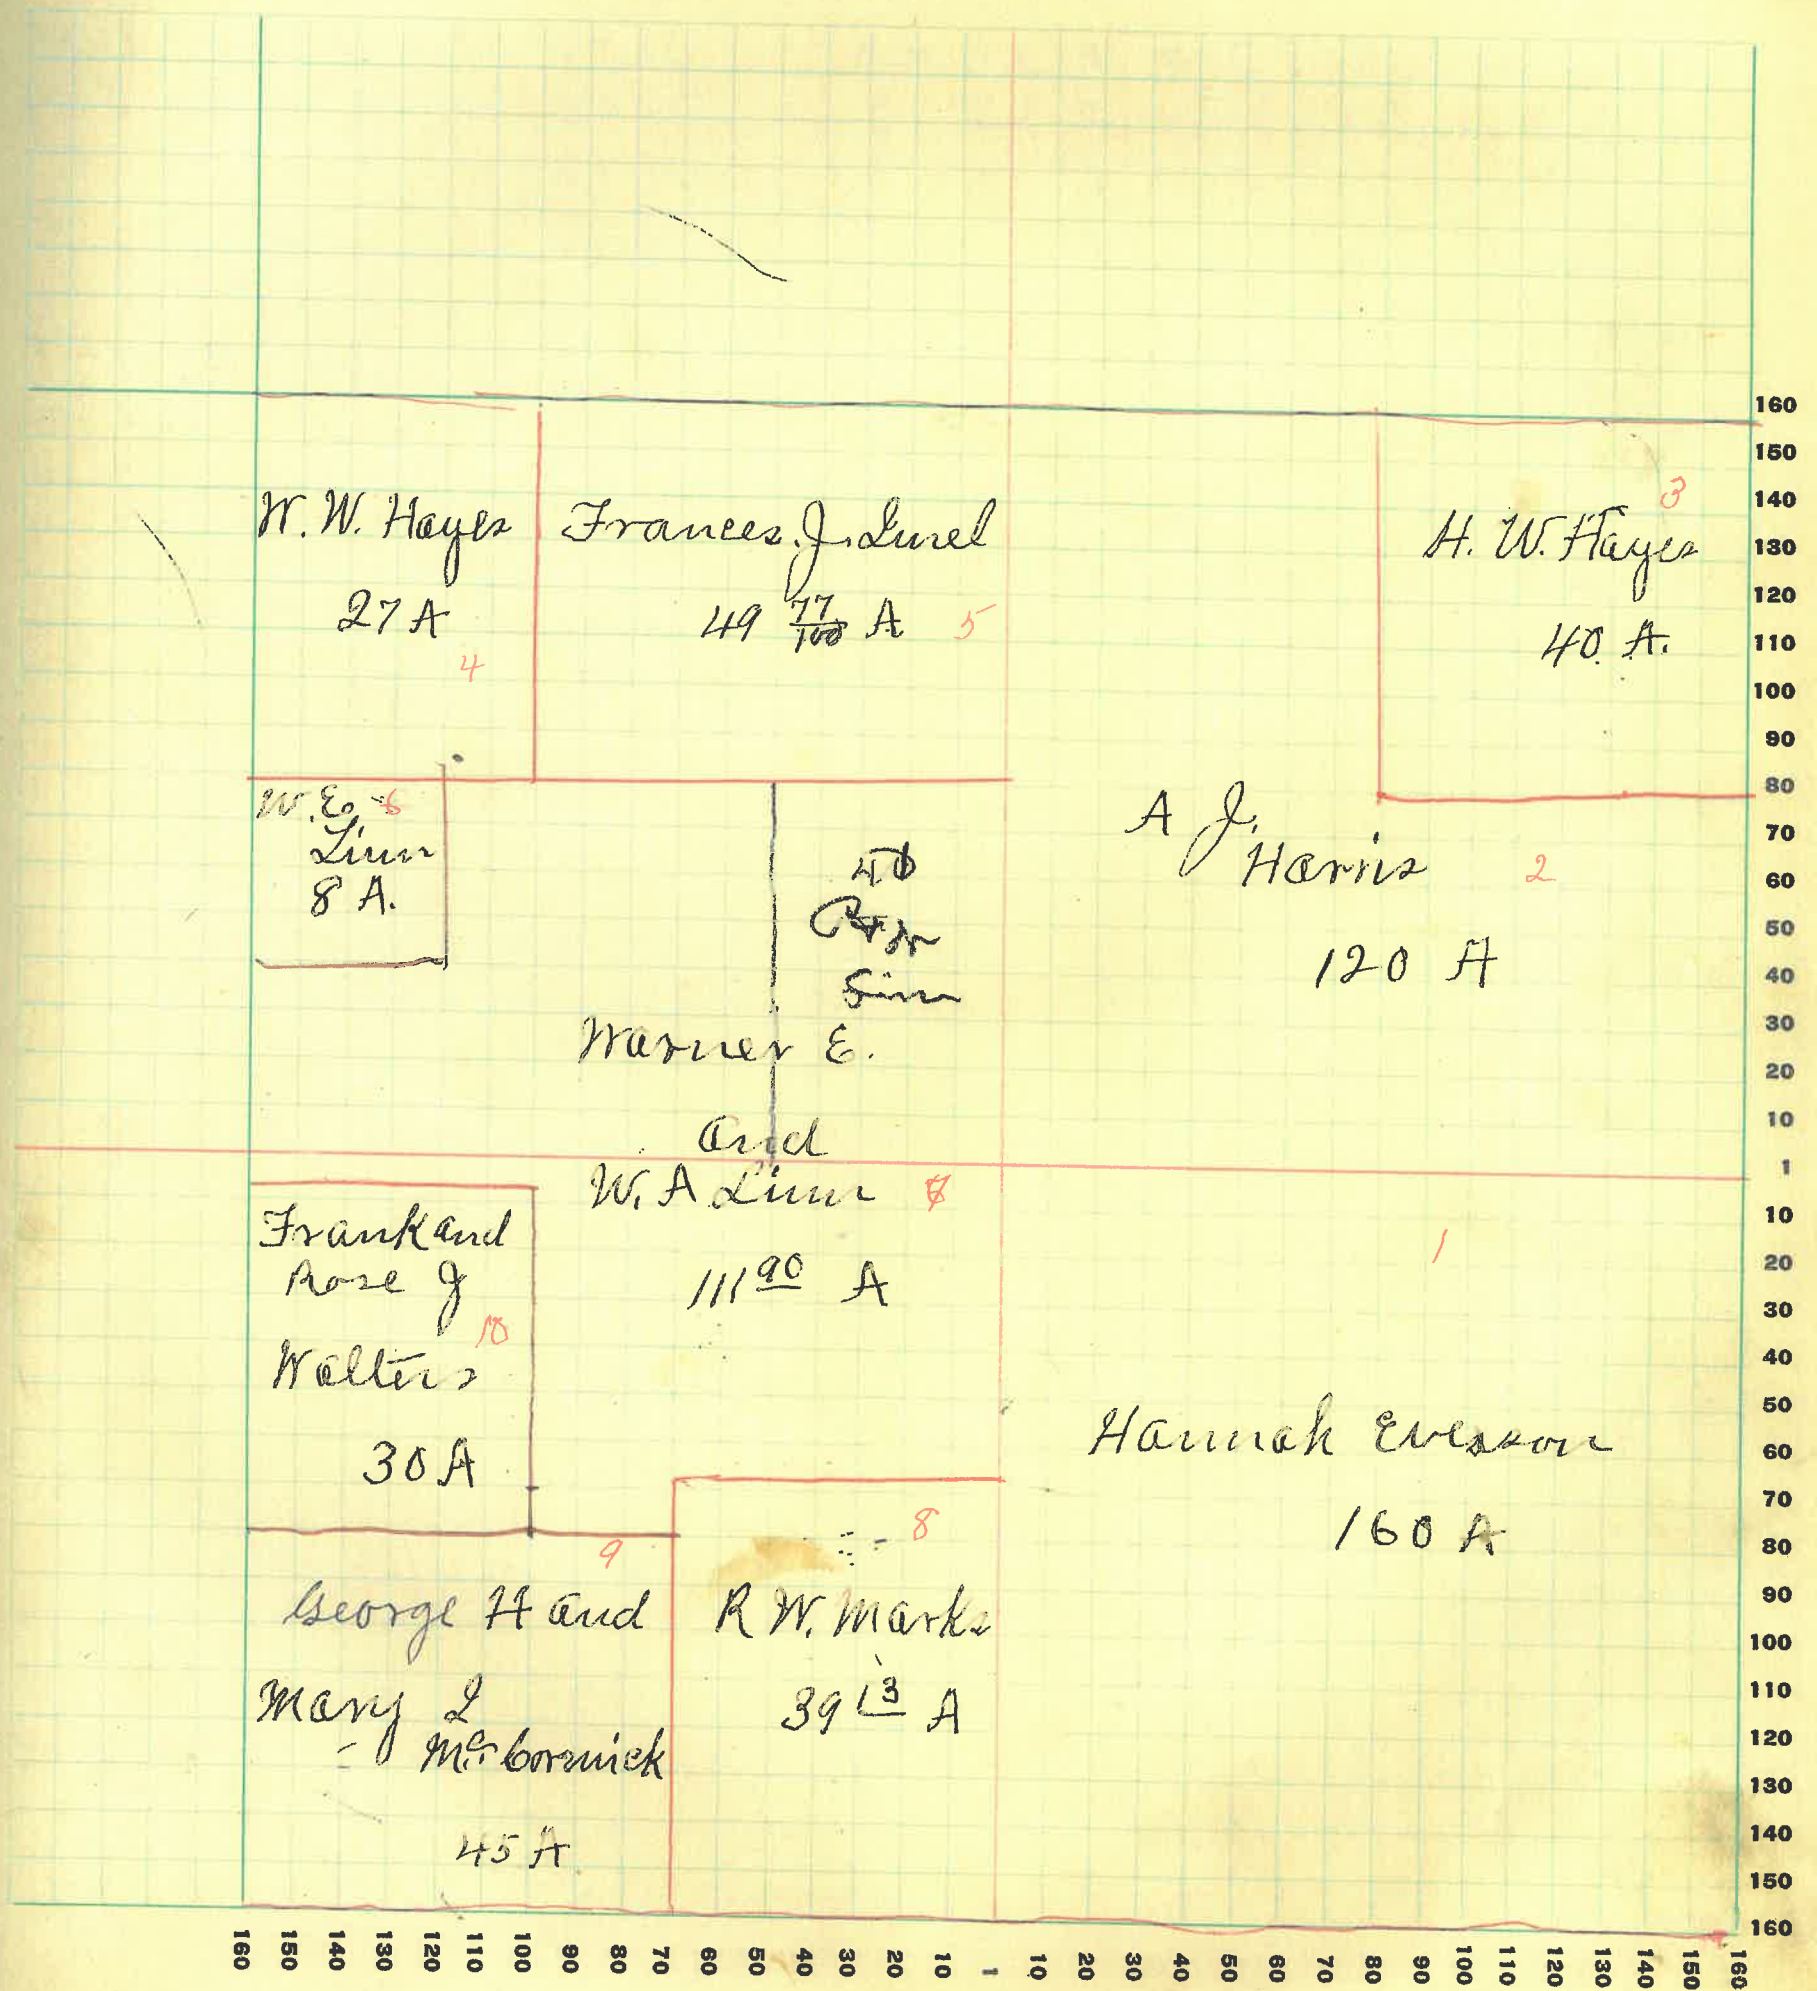 W. W. Hayes
27 A
4
Frances. J. Lurel
49 77/100 A 5
3
H. W. Hayes
40 A.
W. E. 6
Linn
8 A.
40
A J.
Harris 2
120 A
Warner E.
and
W. A Linn 7
111 90 A
Frank and
Rose J
10
Walters
30 A
1
Hannah Evesson
160 A
9
George H and
Mary I
McCormick
45 A
8
R W. Marks
39 13 A
160
150
140
130
120
110
100
90
80
70
60
50
40
30
20
10
1
10
20
30
40
50
60
70
80
90
100
110
120
130
140
150
160
160 150 140 130 120 110 100 90 80 70 60 50 40 30 20 10 1 10 20 30 40 50 60 70 80 90 100 110 120 130 140 150 160